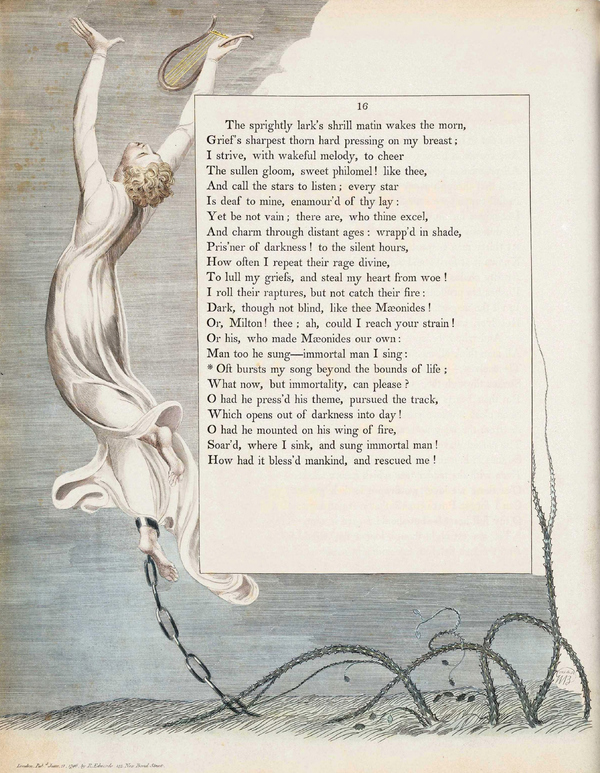 16
The sprightly lark's shrill matin wakes the morn,
Grief's sharpest thorn hard pressing on my breast;
I strive, with wakeful melody, to cheer
The sullen gloom, sweet philomel! like thee,
And call the stars to listen; every star
Is deaf to mine, enamour'd of thy lay:
Yet be not vain; there are, who thine excel,
And charm through distant ages: wrapp'd in shade,
Pris'ner of darkness! to the silent hours,
How often I repeat their rage divine,
To lull my griefs, and steal my heart from woe!
I roll their raptures, but not catch their fire:
Dark, though not blind, like thee Mæonides!
Or, Milton! thee; ah, could I reach your strain!
Or his, who made Mæonides our own:
Man too he sung—immortal man I sing:
* Oft bursts my song beyond the bounds of life;
What now, but immortality, can please?
O had he press'd his theme, pursued the track,
Which opens out of darkness into day!
O had he mounted on his wing of fire,
Soar'd, where I sink, and sung immortal man!
How had it bless'd mankind, and rescued me!
London, Pub.d June, 1796, by R. Edwards, 142 New Bond Street.